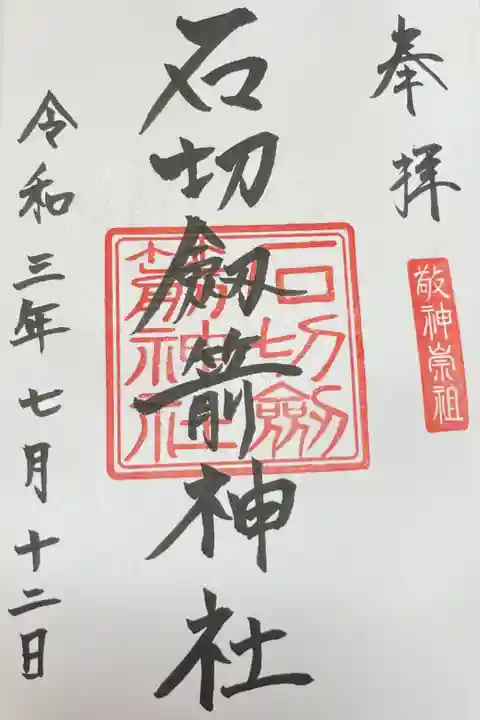 奉拝
敬神崇祖
石切劔箭神社
石切劔箭神社
令和三年七月十二日